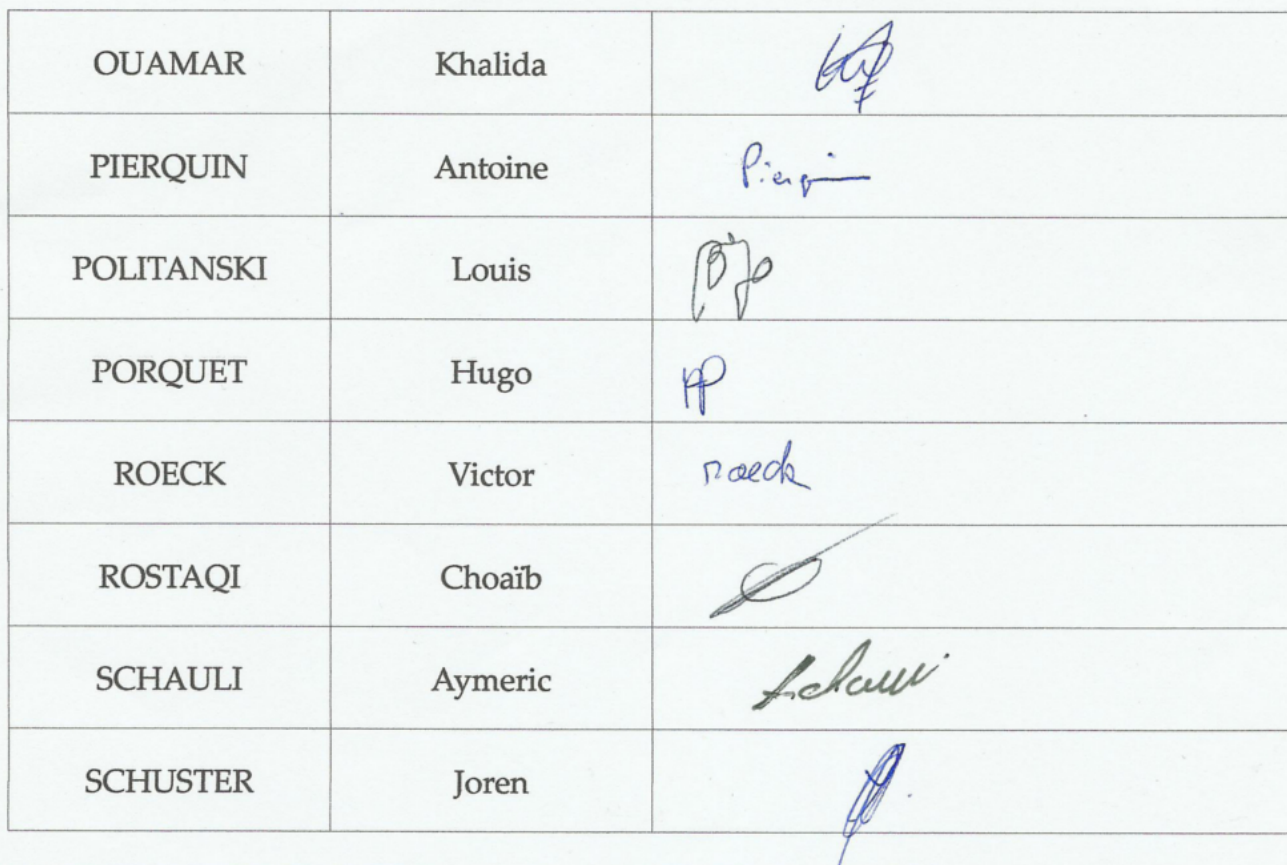 OUAMAR Khalida
PIERQUIN Antoine Pierquin
POLITANSKI Louis
PORQUET Hugo
ROECK Victor roeck
ROSTAQI Choaïb
SCHAULI Aymeric Schauli
SCHUSTER Joren